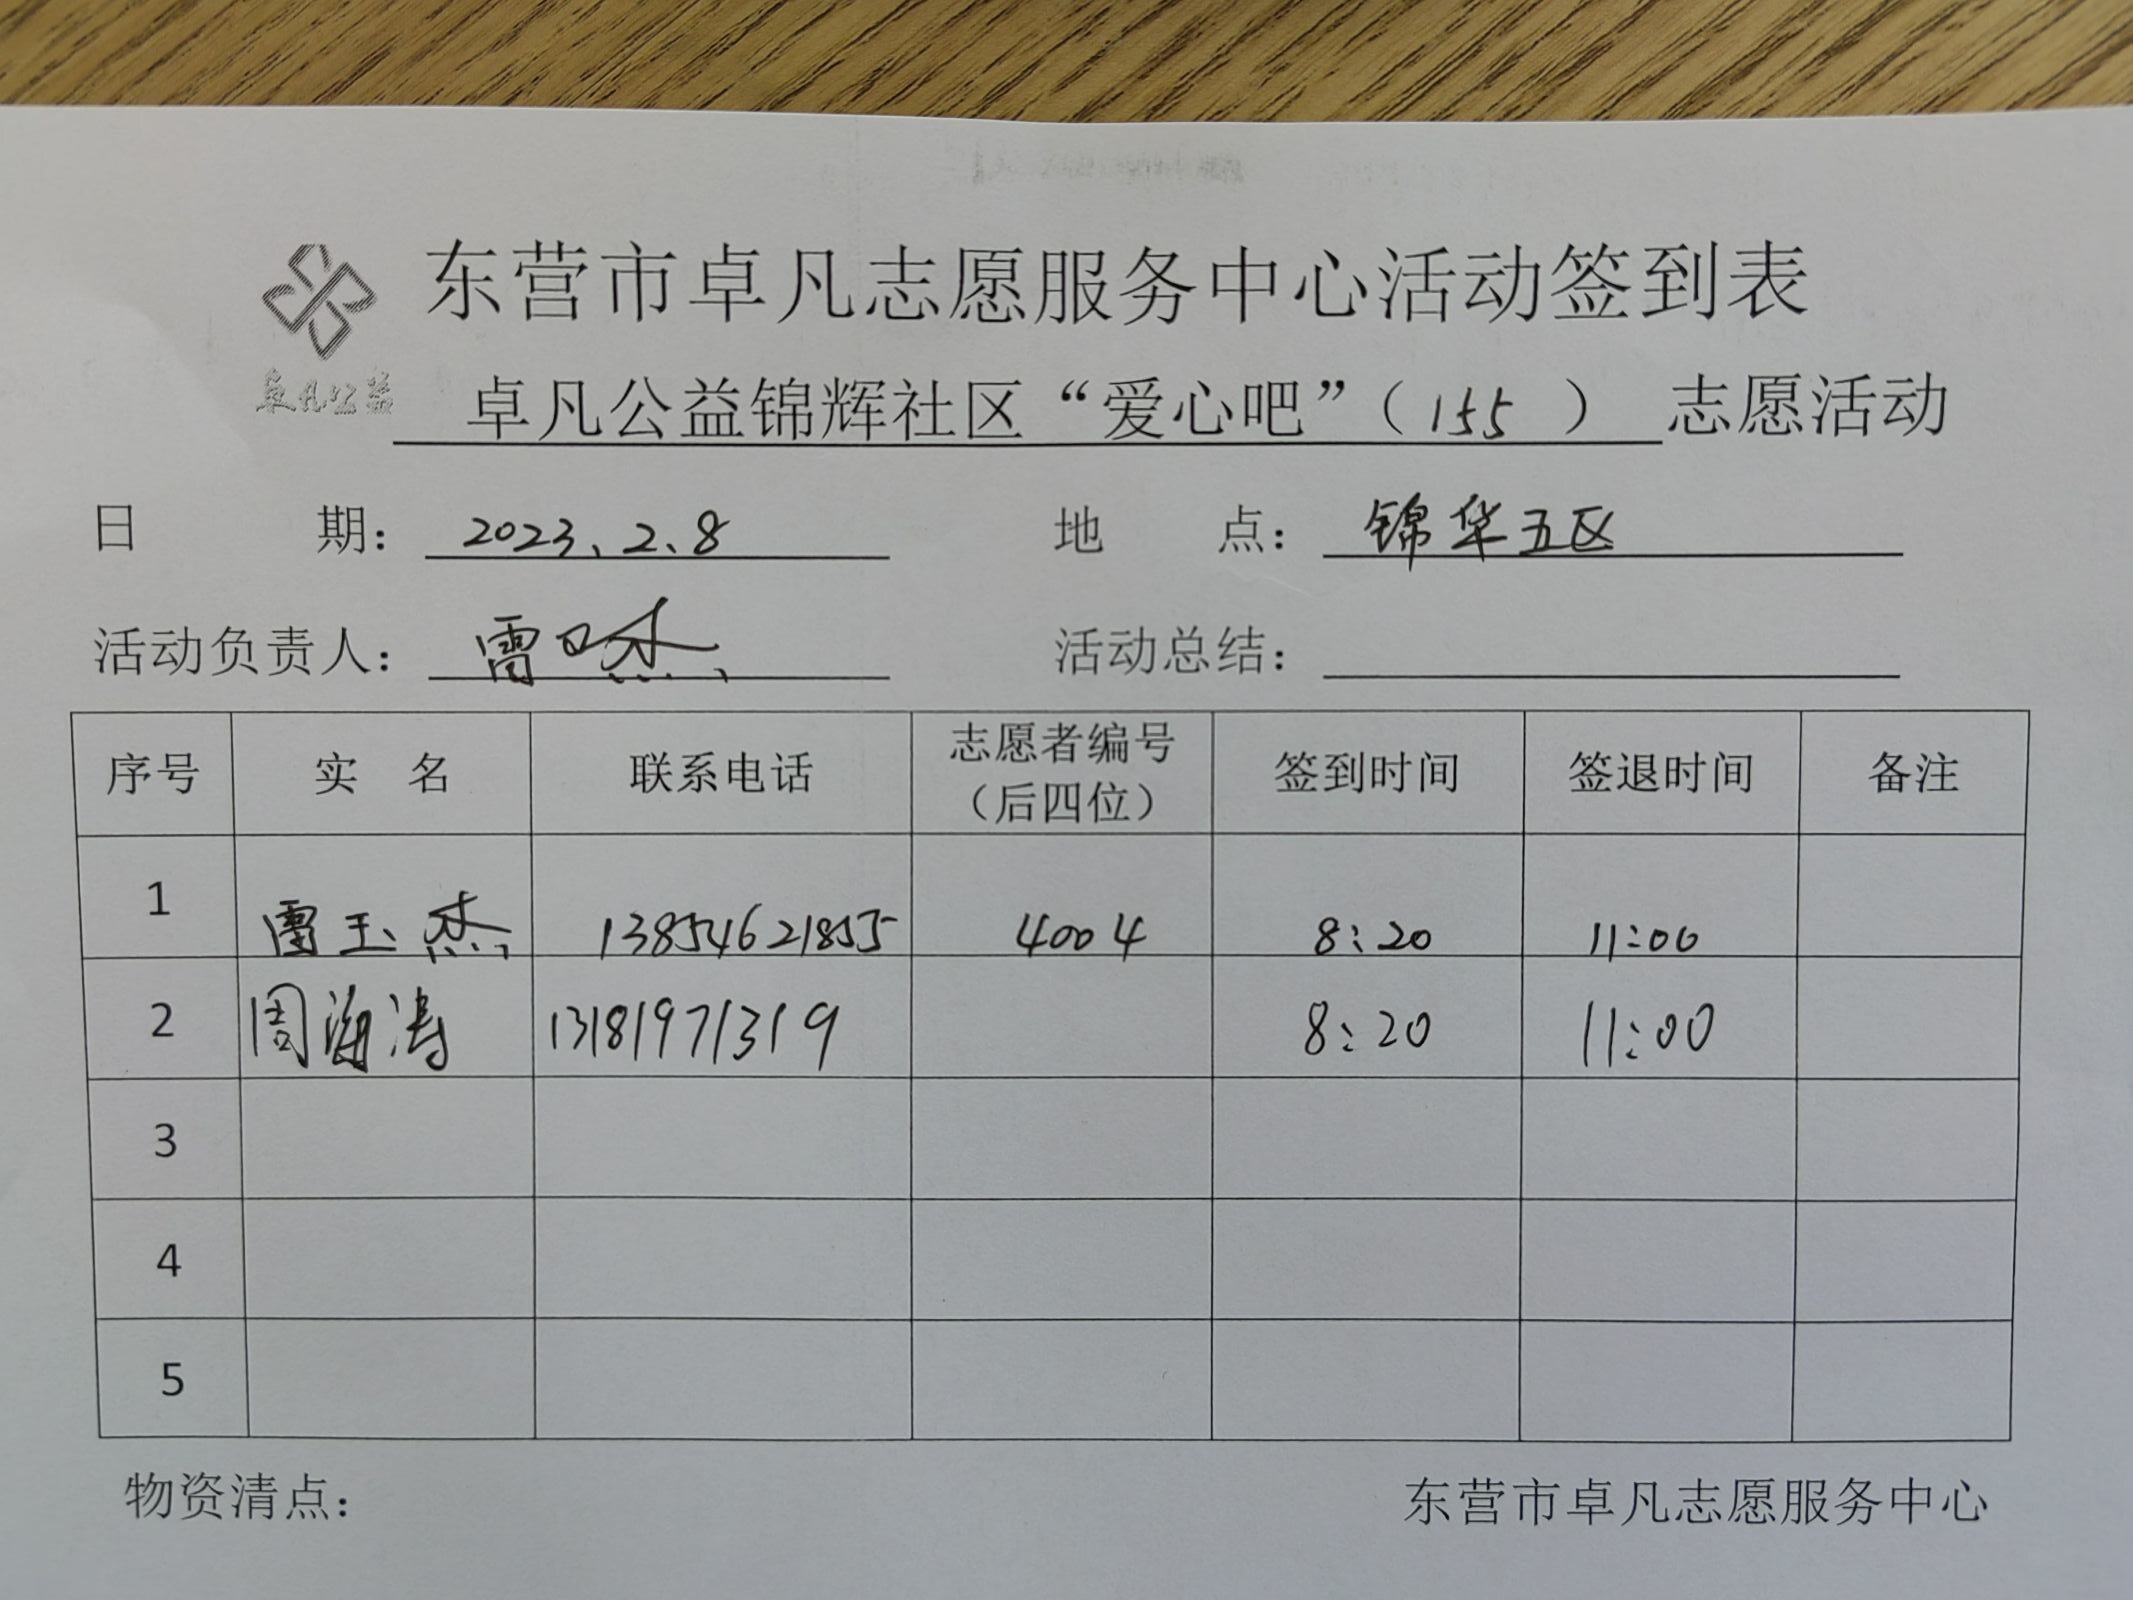 东营市卓凡志愿服务中心活动签到表
卓凡公益
卓凡公益锦辉社区“爱心吧”（155）志愿活动
日期：2023、2、8 地点：锦华五区
活动负责人：雷玉杰 活动总结：
序号 实名 联系电话 志愿者编号（后四位） 签到时间 签退时间 备注
1 雷玉杰 13854621855 4004 8:20 11:00
2 周海涛 13181971319 8:20 11:00
3
4
5
物资清点： 东营市卓凡志愿服务中心